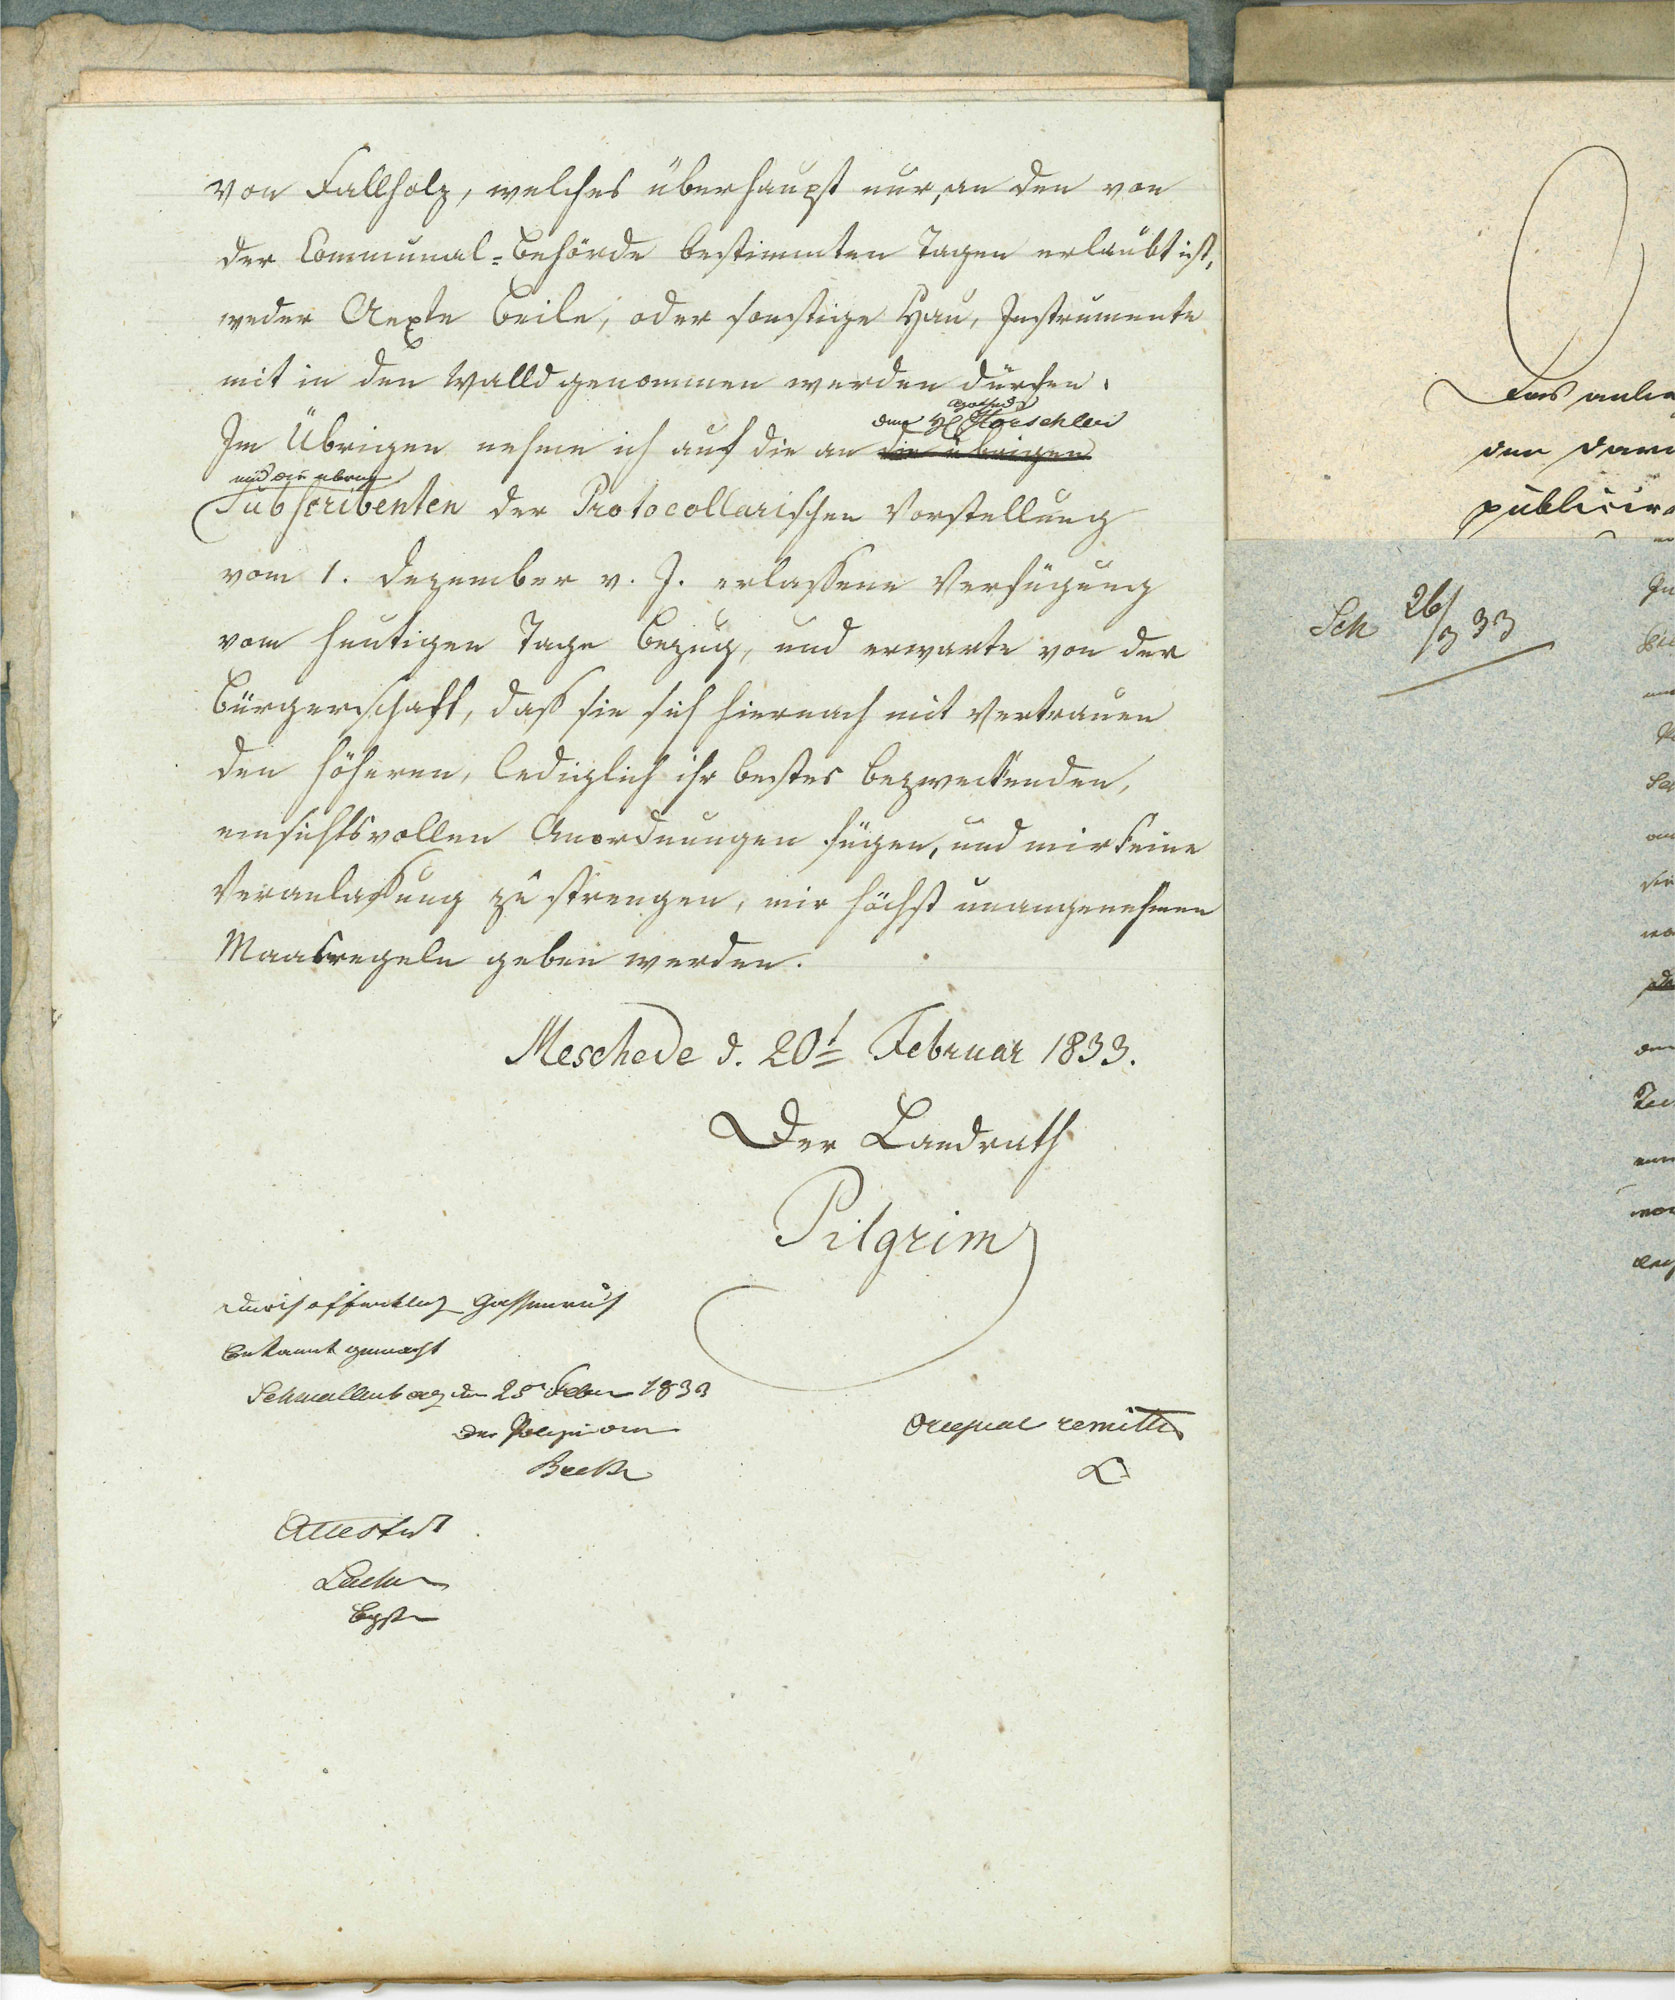 von Fallholz, welches überhaupt nur, an den von
der Communal-Behörde bestimmten Tagen erlaubt ist,
weder Aexte Beile, oder sonstige Hau, Instrumente
mit in den Walld genommen werden dürfen.
den H Apotheker Hoeschler
Im Übrigen nehme ich auf die an die übrigen
und die übrigen
Subscribenten der Protocollarischen Vorstellung
vom 1. Dezember v. J. erlaßene Verfügung
vom heutigen Tage Bezug, und erwarte von der
Bürgerschaft, daß sie sich hiernach mit Vertrauen
den höheren, lediglich ihr bestes bezweckenden,
einsichtsvollen Anordnungen fügen, und mir keine
Veranlaßung zu strengen, mir höchst unangenehmen
Maasregeln geben werden.
Meschede d. 20t Februar 1833.
Der Landrath
Pilgrim
durch offentlich Gassenruf
bekannt gemacht
Schmallenberg den 25 Febr 1833
Der Polizei
Original remittir
L
Attestirt
Das anlie
den dar
publicir
Sch 26/3 33